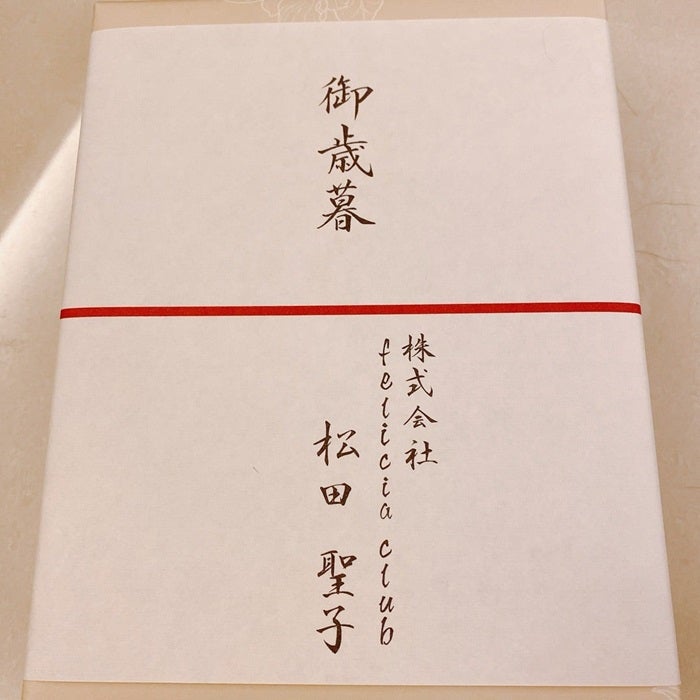 御歳暮
株式会社
felicia club
松田 聖子